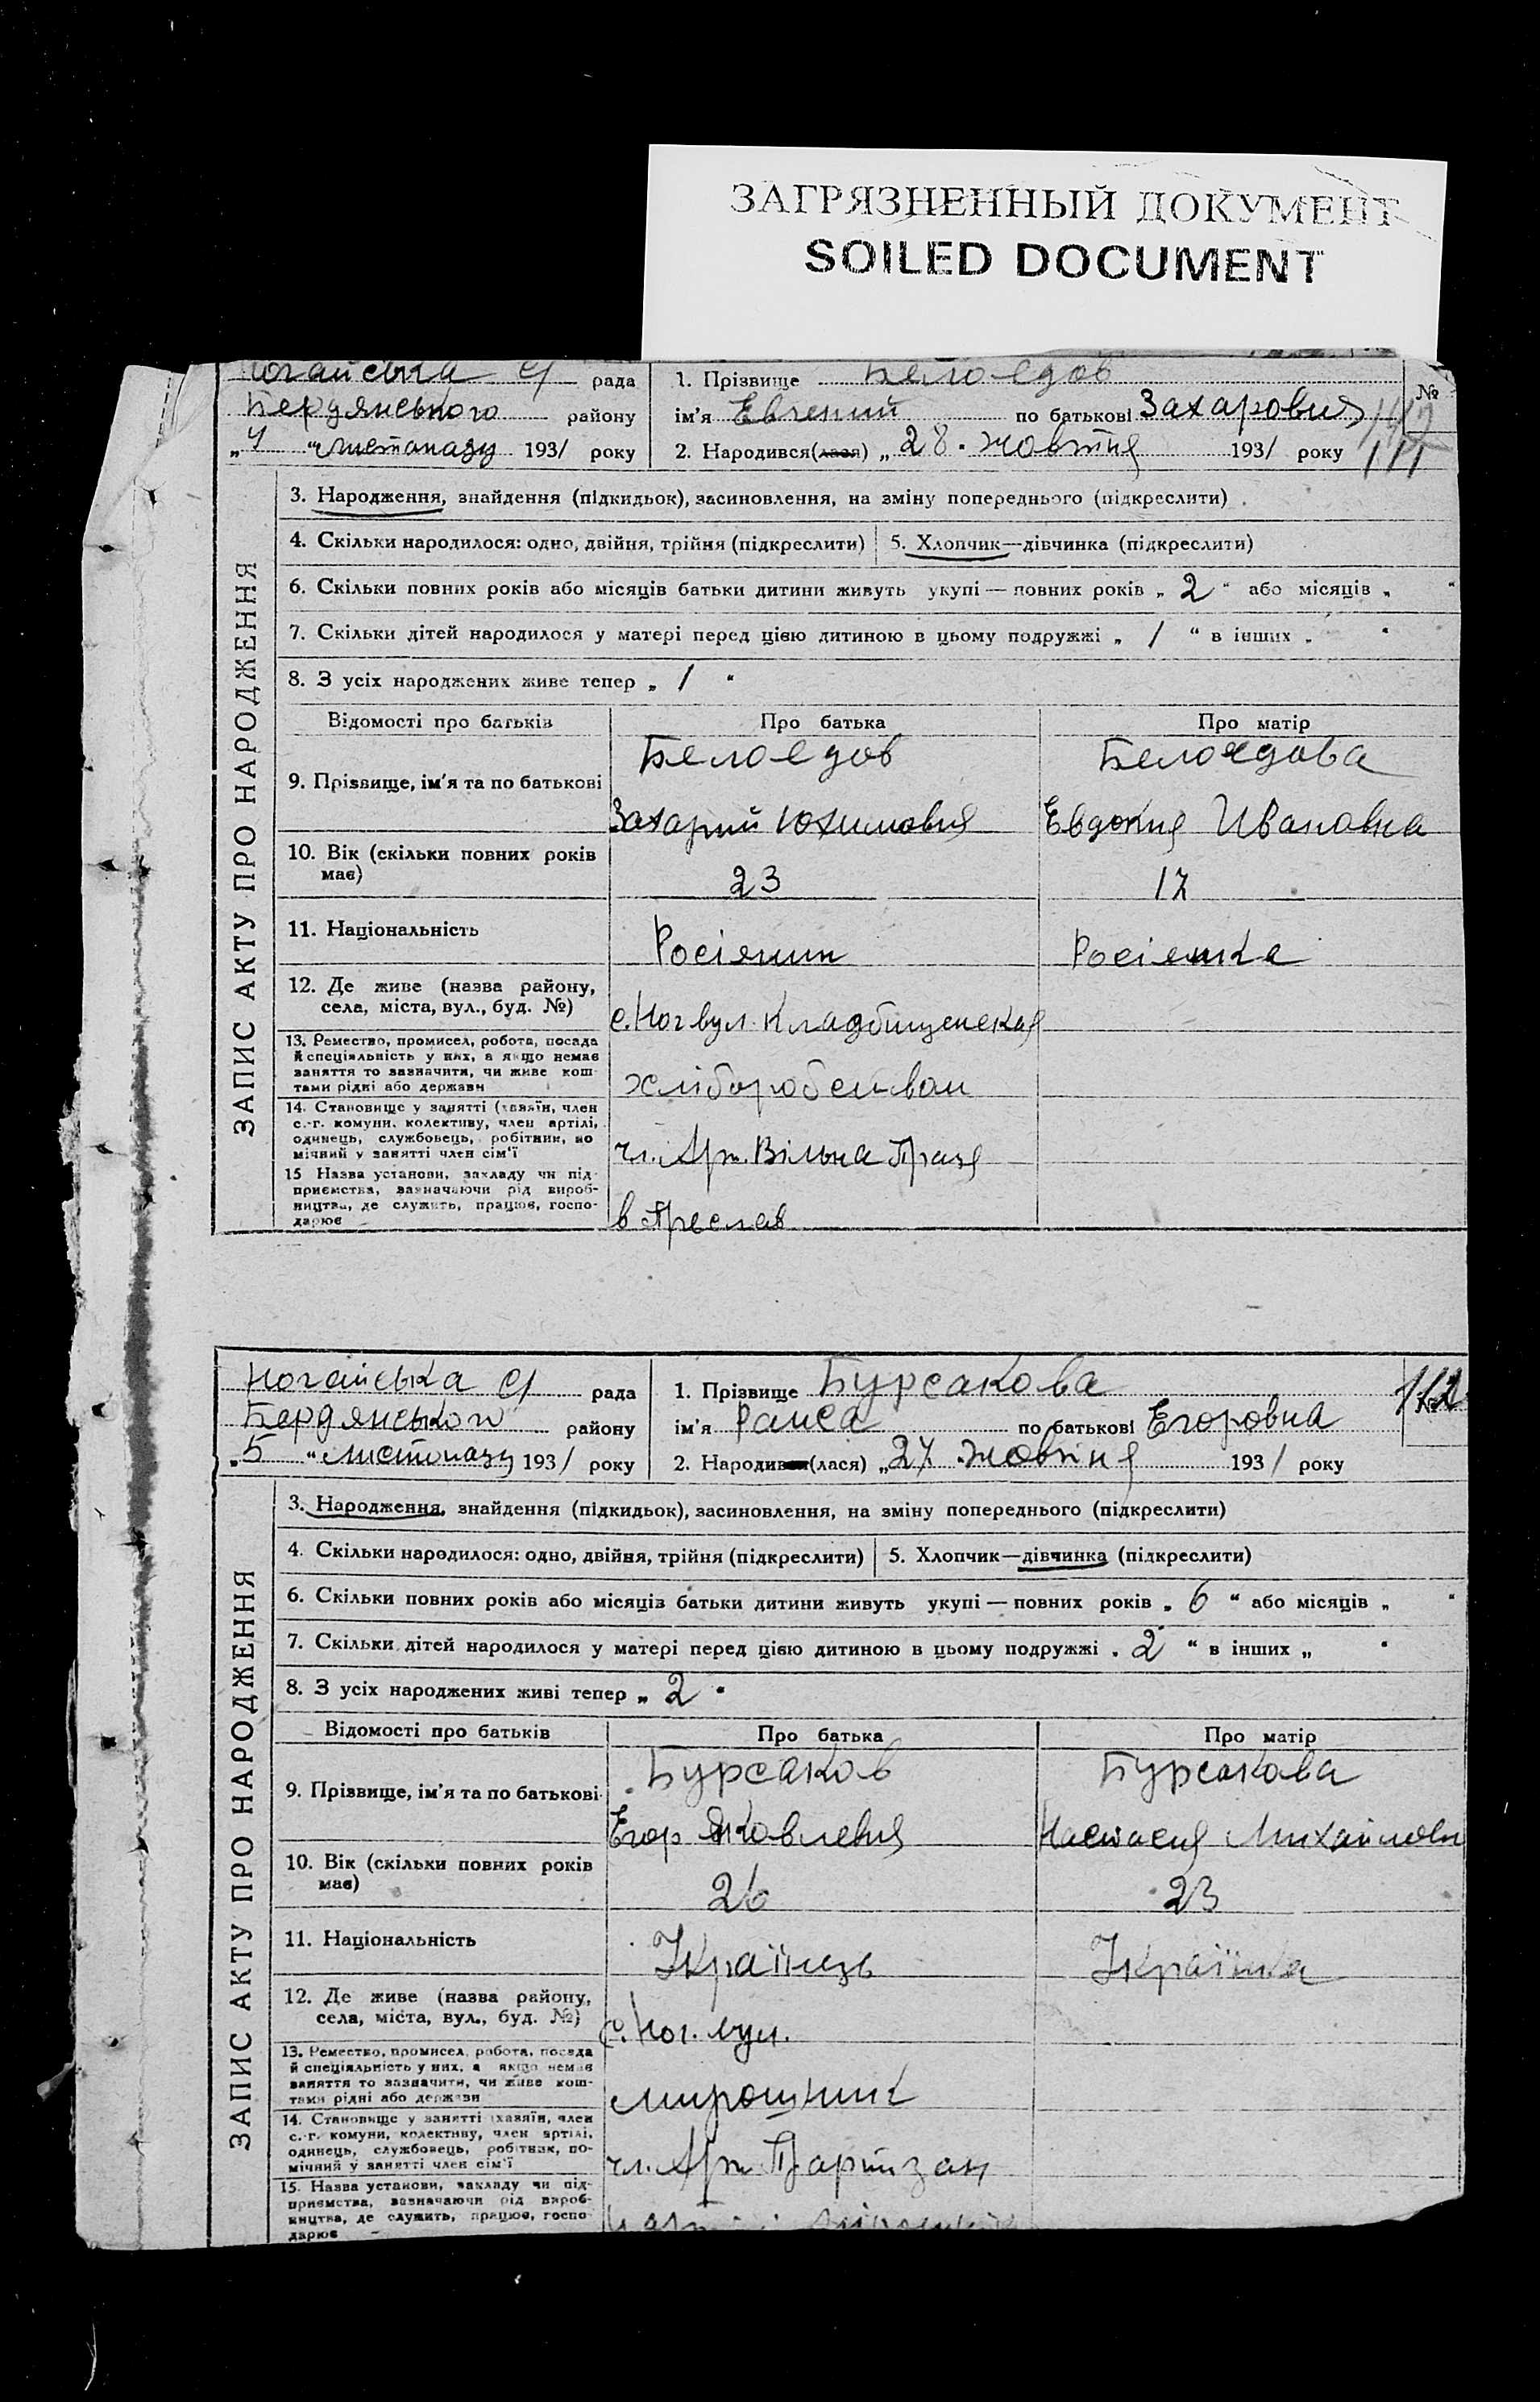 ЗАГРЯЗНЕННЫЙ ДОКУМЕНТ
SOILED DOCUMENT
Ногайська рада
Бердянського району
„4“ листопаду 1931 року
1. Прізвище Белоедов
ім'я Евгений по батькові Захарович
2. Народився(лася) „28. жовтня 1931 року
№
111
ЗАПИС АКТУ ПРО НАРОДЖЕННЯ
3. Народження, знайдення (підкидьок), засиновлення, на зміну попереднього (підкреслити)
4. Скільки народилося: одно, двійня, трійня (підкреслити)
5. Хлопчик—дівчинка (підкреслити)
6. Скільки повних років або місяців батьки дитини живуть укупі — повних років „2“ або місяців „ “
7. Скільки дітей народилося у матері перед цією дитиною в цьому подружжі „1“ в інших „ “
8. З усіх народжених живе тепер „1“
Відомості про батьків Про батька Про матір
9. Прізвище, ім'я та по батькові
Белоедов Белоедова
Захарий Юхимович Евдокия Ивановна
10. Вік (скільки повних років має) 23 17
11. Національність Росіянин Росіянка
12. Де живе (назва району, села, міста, вул., буд. №)
с. Ног вул. Кладбищенская
13. Ремество, промисел, робота, посада й спеціяльність у них, а якщо немає заняття то зазначити, чи живе коштами рідні або держави
хліборобством
14. Становище у занятті (хазяїн, член с.-г. комуни, колективу, член артілі, одинець, службовець, робітник, помічний у занятті член сім'ї
чл. Арт. Вільна Праця
15 Назва установи, закладу чи підприємства, зазначаючи рід виробництва, де служить, працює, господарює
Ногайська рада
Бердянського району
„5“ листопаду 1931 року
1. Прізвище Бурсакова
ім'я Раиса по батькові Егоровна
2. Народився(лася) „27. жовтня 1931 року
112
ЗАПИС АКТУ ПРО НАРОДЖЕННЯ
3. Народження, знайдення (підкидьок), засиновлення, на зміну попереднього (підкреслити)
4. Скільки народилося: одно, двійня, трійня (підкреслити)
5. Хлопчик—дівчинка (підкреслити)
6. Скільки повних років або місяців батьки дитини живуть укупі — повних років „6“ або місяців „ “
7. Скільки дітей народилося у матері перед цією дитиною в цьому подружжі „2“ в інших „ “
8. З усіх народжених живі тепер „2“
Відомості про батьків Про батька Про матір
9. Прізвище, ім'я та по батькові
Бурсаков Бурсакова
Егор Яковлевич Настасия Михайловн
10. Вік (скільки повних років має) 26 23
11. Національність Українець Українка
12. Де живе (назва району, села, міста, вул., буд. №)
с. Ног. вул.
13. Ремество, промисел, робота, посада й спеціяльність у них, а якщо немає заняття то зазначити, чи живе коштами рідні або держави
мирошник
14. Становище у занятті (хазяїн, член с.-г. комуни, колективу, член артілі, одинець, службовець, робітник, помічний у занятті член сім'ї
чл. Арт. Партизан
15. Назва установи, закладу чи підприємства, зазначаючи рід виробництва, де служить, працює, господарює